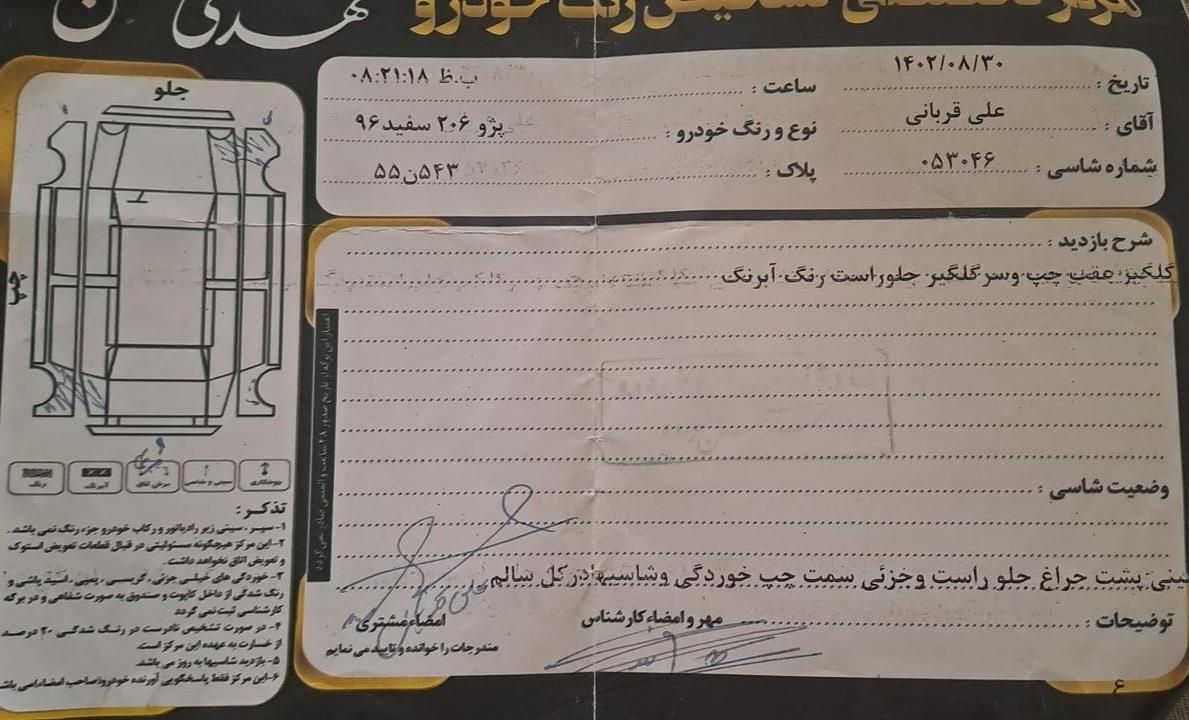 مرکز تخصصی تشخیص رنگ خودرو
تاریخ : ۱۴۰۲/۰۸/۳۰
ساعت : ۰۸:۲۱:۱۸ ب.ظ
آقای : علی قربانی
نوع و رنگ خودرو : پژو ۲۰۶ سفید ۹۶
شماره شاسی : ۰۵۳۰۴۶
پلاک : ۵۴۳ن۵۵
شرح بازدید :
گلگیر عقب چپ وسر گلگیر جلوراست رنگ آبرنگ
وضعیت شاسی :
سینی پشت چراغ جلو راست وجزئی سمت چپ خوردگی وشاسیهادرکل سالم
توضیحات :
مهر و امضاء کارشناس
امضاء مشتری
علی
مندرجات را خوانده و تایید می نمایم
۶
جلو
چپ
رنگ
آبرنگ
سینی و شاسی
جوشکاری
تذکر :
۱- سپر ، سینی زیر رادیاتور و رکاب خودرو جزء رنگ نمی باشد.
۲- این مرکز هیچگونه مسئولیتی در قبال قطعات تعویض استوک
و تعویض اتاق نخواهد داشت.
۳- خوردگی های خیلی جزئی ، گریسی ، پمپی ، اسید پاشی و
رنگ شدگی از داخل کاپوت و صندوق به صورت شفاهی و در برگه
کارشناسی ثبت نمی گردد
۴- در صورت تشخیص نادرست در رنگ شدگی ۲۰ درصد
از خسارت به عهده این مرکز است.
۵- بازدید شاسیها به روز می باشد.
۶- این مرکز فقط پاسخگویی آورنده خودرو(صاحب امضاء)می باشد